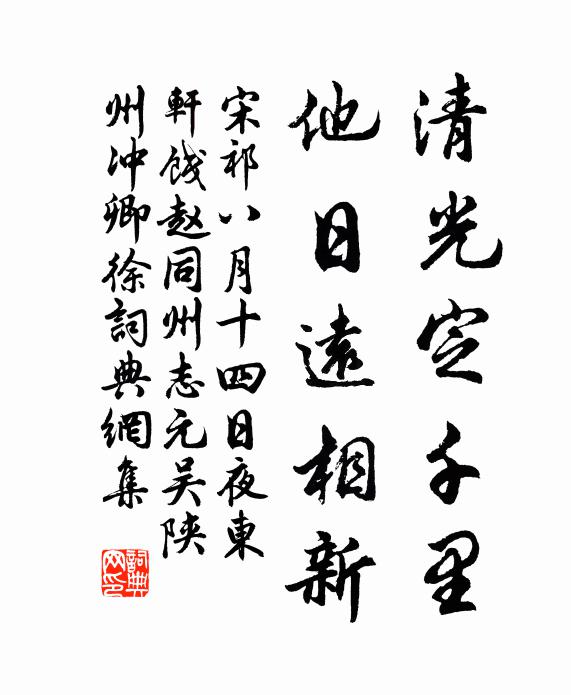 清光定千里
他日遠相新
宋祁八月十四日夜東
軒餞赵同州志元吴陕
州冲卿徐詞典網集
詞典
网印